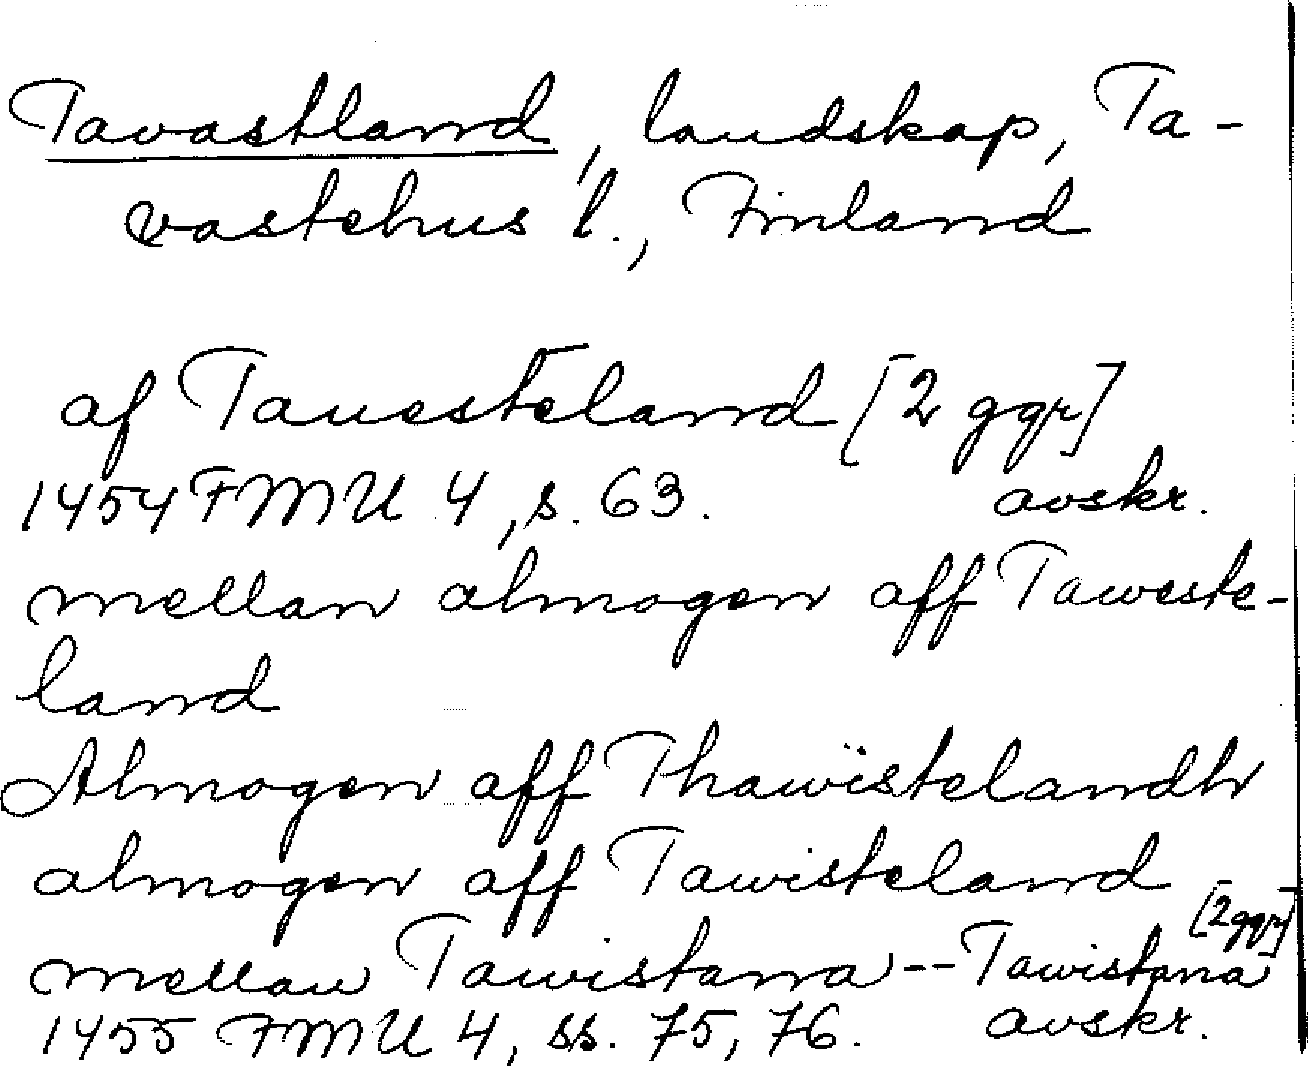 Tavastland, landskap, Ta-
vastehus l., Finland
af Tauesteland [2 ggr]
1454 FMU 4, s. 63. avskr.
mellan almogen aff Taweste-
land
Almogen aff Thawistelandh
almogen aff Tawisteland
mellan Tawistana -- Tawistana [2 ggr]
1455 FMU 4, ss. 75, 76. avskr.